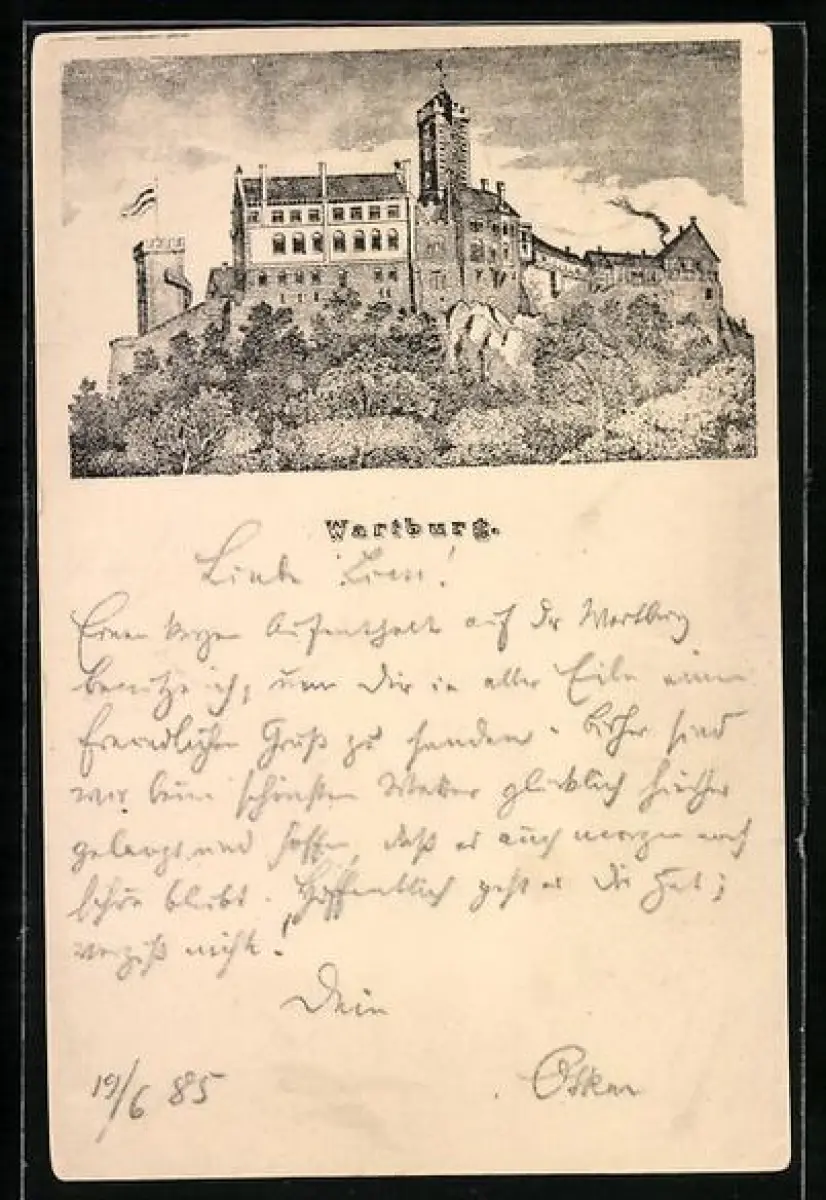 Wartburg.
Liebe !
Einen kurzen Aufenthalt auf der Wartburg
benutze ich, um Dir in aller Eile einen
freundlichen Gruß zu senden. Bisher sind
wir beim schönsten Wetter glücklich hierher
gelangt und hoffen, daß es auch morgen noch
schön bleibt. Hoffentlich geht es Dir gut;
vergiß nicht!
Dein
19/6 85 Oskar